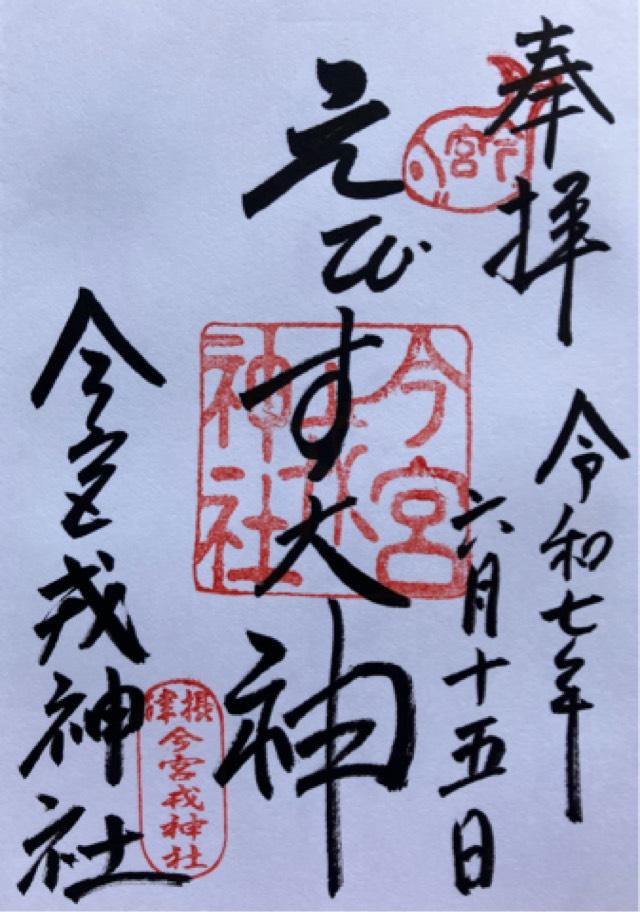 奉拝
令和七年
六月十五日
えびす大神
今宮戎神社
今宮
神社
摂津
今宮戎神社